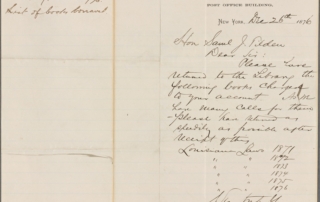 List of books loaned
POST OFFICE BUILDING,
NEW YORK, Dec 26th 1876
Hon Saml J. Tilden
Dear Sir:
Please have
returned to the Library the
following books charged
to your account
have many calls for them
Please have returned as
speedily as possible after
receipt of this
Louisiana Laws 1871
" " 1872
" " 1873
" " 1874
" " 1875
" " 1876